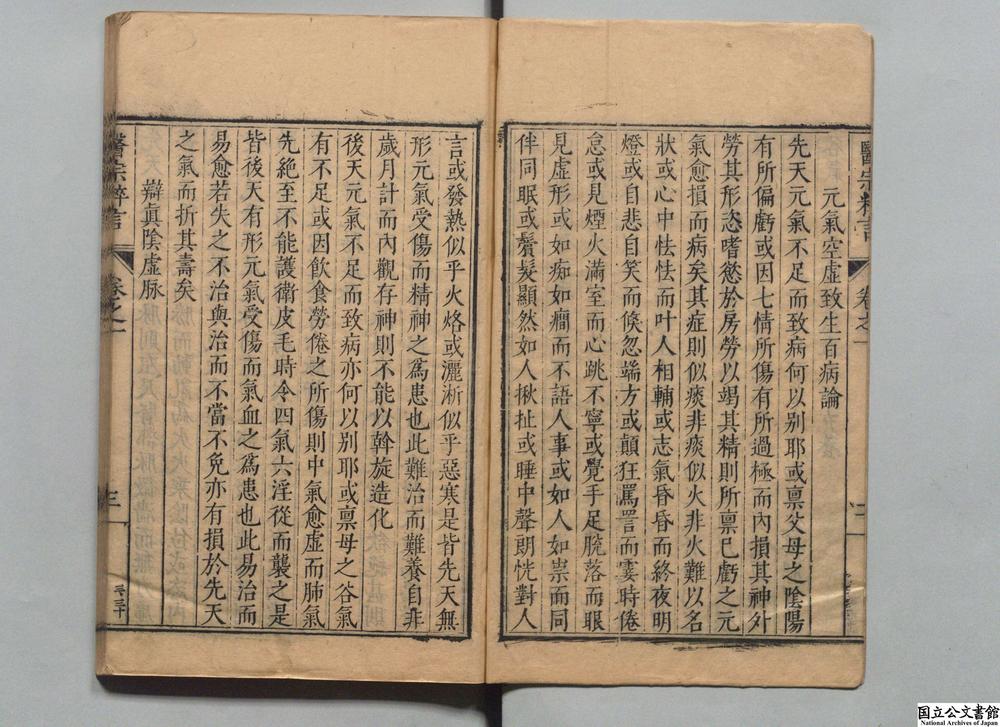 醫宗粹言 卷之一 二
元氣空虛致生百病論
先天元氣不足而致病何以别耶或禀父母之陰陽
有所偏虧或因七情所傷有所過極而內損其神外
勞其形恣嗜慾於房勞以竭其精則所禀已虧之元
氣愈損而病矣其症則似痰非痰似火非火難以名
狀或心中怯怯而叶人相輔或志氣昏昏而終夜明
燈或自悲自笑而倐忽端方或顛狂罵詈而霎時倦
怠或見煙火滿室而心跳不寧或覺手足脫落而眼
見虛形或如痴如癎而不語人事或如人如祟而同
伴同眠或鬢髮顯然如人揪扯或睡中聲朗恍對人
言或發熱似乎火烙或灑淅似乎惡寒是皆先天無
形元氣受傷而精神之爲患也此難治而難養自非
歲月計而內觀存神則不能以斡旋造化
後天元氣不足而致病亦何以别耶或禀母之谷氣
有不足或因飲食勞倦之所傷則中氣愈虛而肺氣
先絕至不能護衛皮毛時令四氣六淫從而襲之是
皆後天有形元氣受傷而氣血之爲患也此易治而
易愈若失之不治與治而不當不免亦有損於先天
之氣而折其壽矣
辯眞陰虛脉
醫宗粹言 卷之一 三
国立公文書館
National Archives of Japan